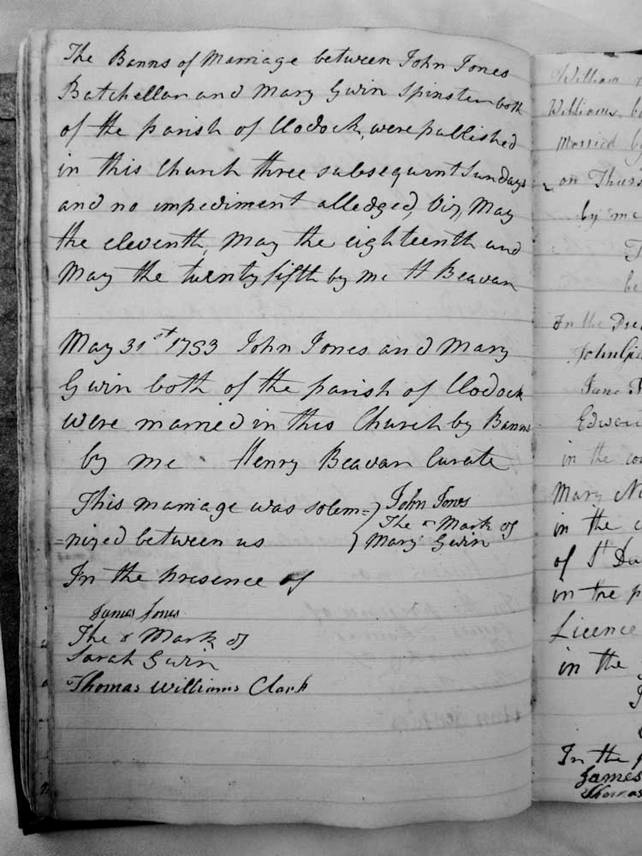 The Banns of Marriage between John Jones
Batchellor and Mary Gwin Spinster both
of the parish of Clodock, were published
in this Church three subsequent Sundays
and no impediment alledged, Viz, May
the eleventh, May the eighteenth and
May the twenty fifth by me H Beavan
May 31st 1753 John Jones and Mary
Gwin both of the parish of Clodock
were married in this Church by Banns
by me Henry Beavan Curate
This marriage was solem=
=nized between us
John Jones
The Mark of
Mary Gwin
In the presence of
James Jones
The x Mark of
Sarah Gwin
Thomas Williams Clark
William
Williams
Married
on Thurs
by me
in the
Mary
in the
of St
in the p
Licence
in the
In the p
James
Thomas